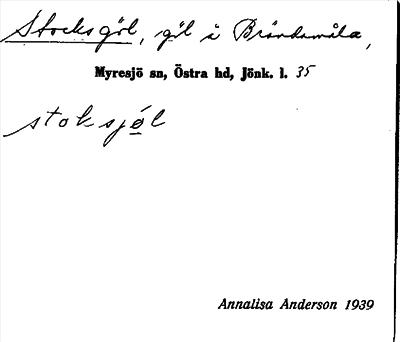 Stocksgöl, göl i Brändamåla,
Myresjö sn, Östra hd, Jönk. l. 35
stoksjøl
Annalisa Anderson 1939